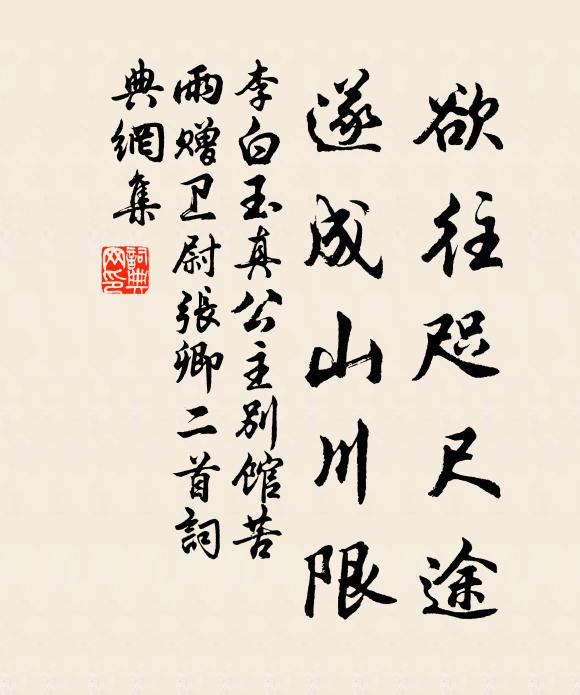 欲往咫尺途
遂成山川限
李白玉真公主别馆苦
雨赠卫尉張卿二首詞
典網集
詞典
网印